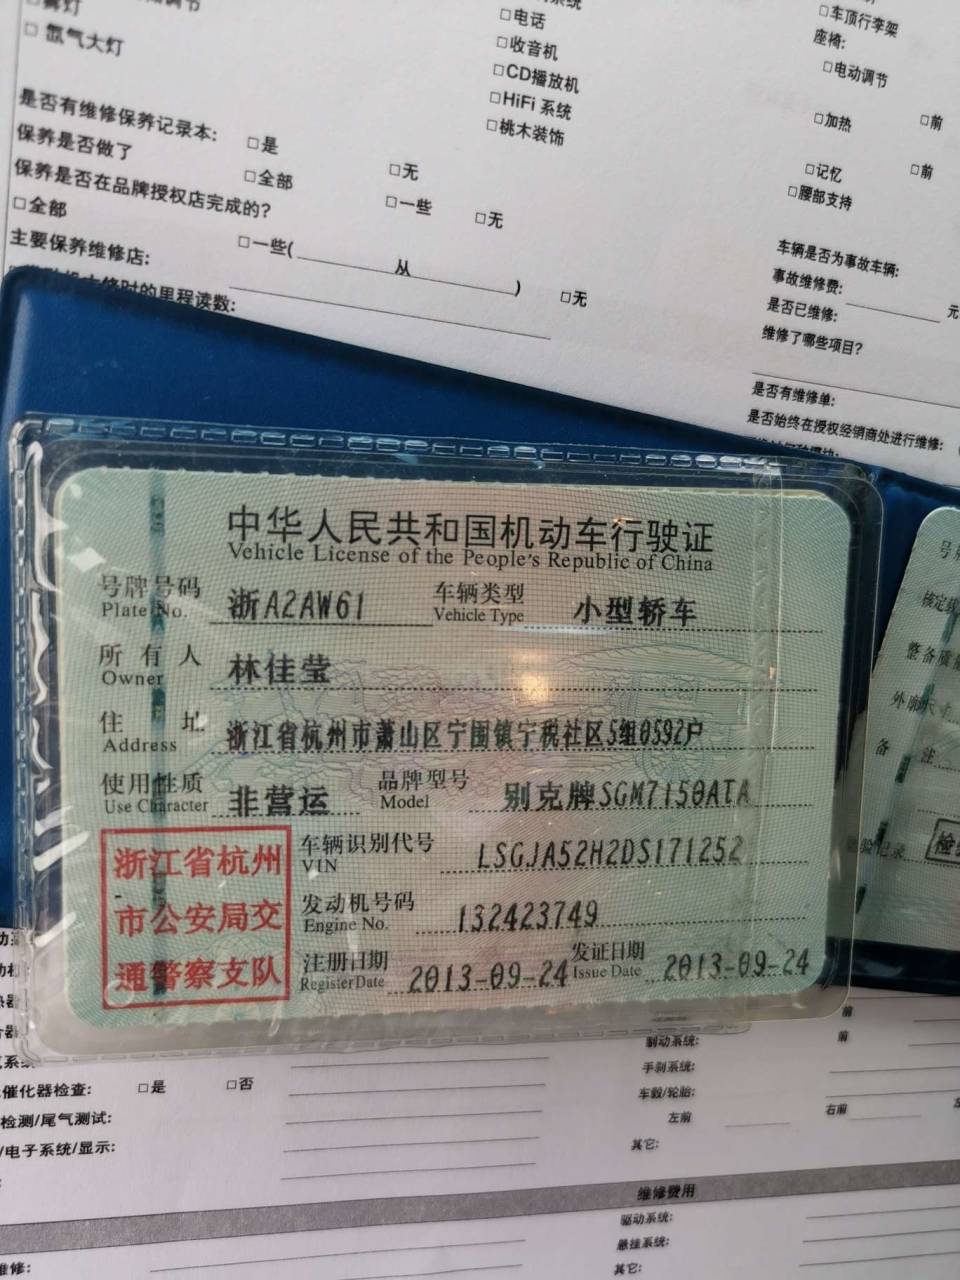 □氙气大灯
是否有维修保养记录本: □是
保养是否做了 □全部 □无
保养是否在品牌授权店完成的? □一些 □无
□全部 □一些( 从 ) □无
主要保养维修店:
时的里程读数:
□电话
□收音机
□CD播放机
□HiFi 系统
□桃木装饰
□车顶行李架
座椅:
□电动调节
□加热 □前
□记忆 □前
□腰部支持
车辆是否为事故车辆:
事故维修费: 元
是否已维修:
维修了哪些项目?
是否有维修单:
是否始终在授权经销商处进行维修:
中华人民共和国机动车行驶证
Vehicle License of the People's Republic of China
号牌号码 浙A2AW61 车辆类型 小型轿车
Plate No. Vehicle Type
所有人 林佳莹
Owner
住址 浙江省杭州市萧山区宁围镇宁税社区5组0592户
Address
使用性质 非营运 品牌型号 别克牌SGM7150ATA
Use Character Model
浙江省杭州
市公安局交
通警察支队
车辆识别代号 LSGJA52H2DS171252
VIN
发动机号码 132423749
Engine No.
注册日期 2013-09-24 发证日期 2013-09-24
Register Date Issue Date
整备质
外廓尺寸
备注
催化器检查: □是 □否
检测/尾气测试:
/电子系统/显示:
维修:
前
制动系统: 前
手刹系统:
车毂/轮胎:
左前 右前
其它:
维修费用
驱动系统:
悬挂系统:
其它: